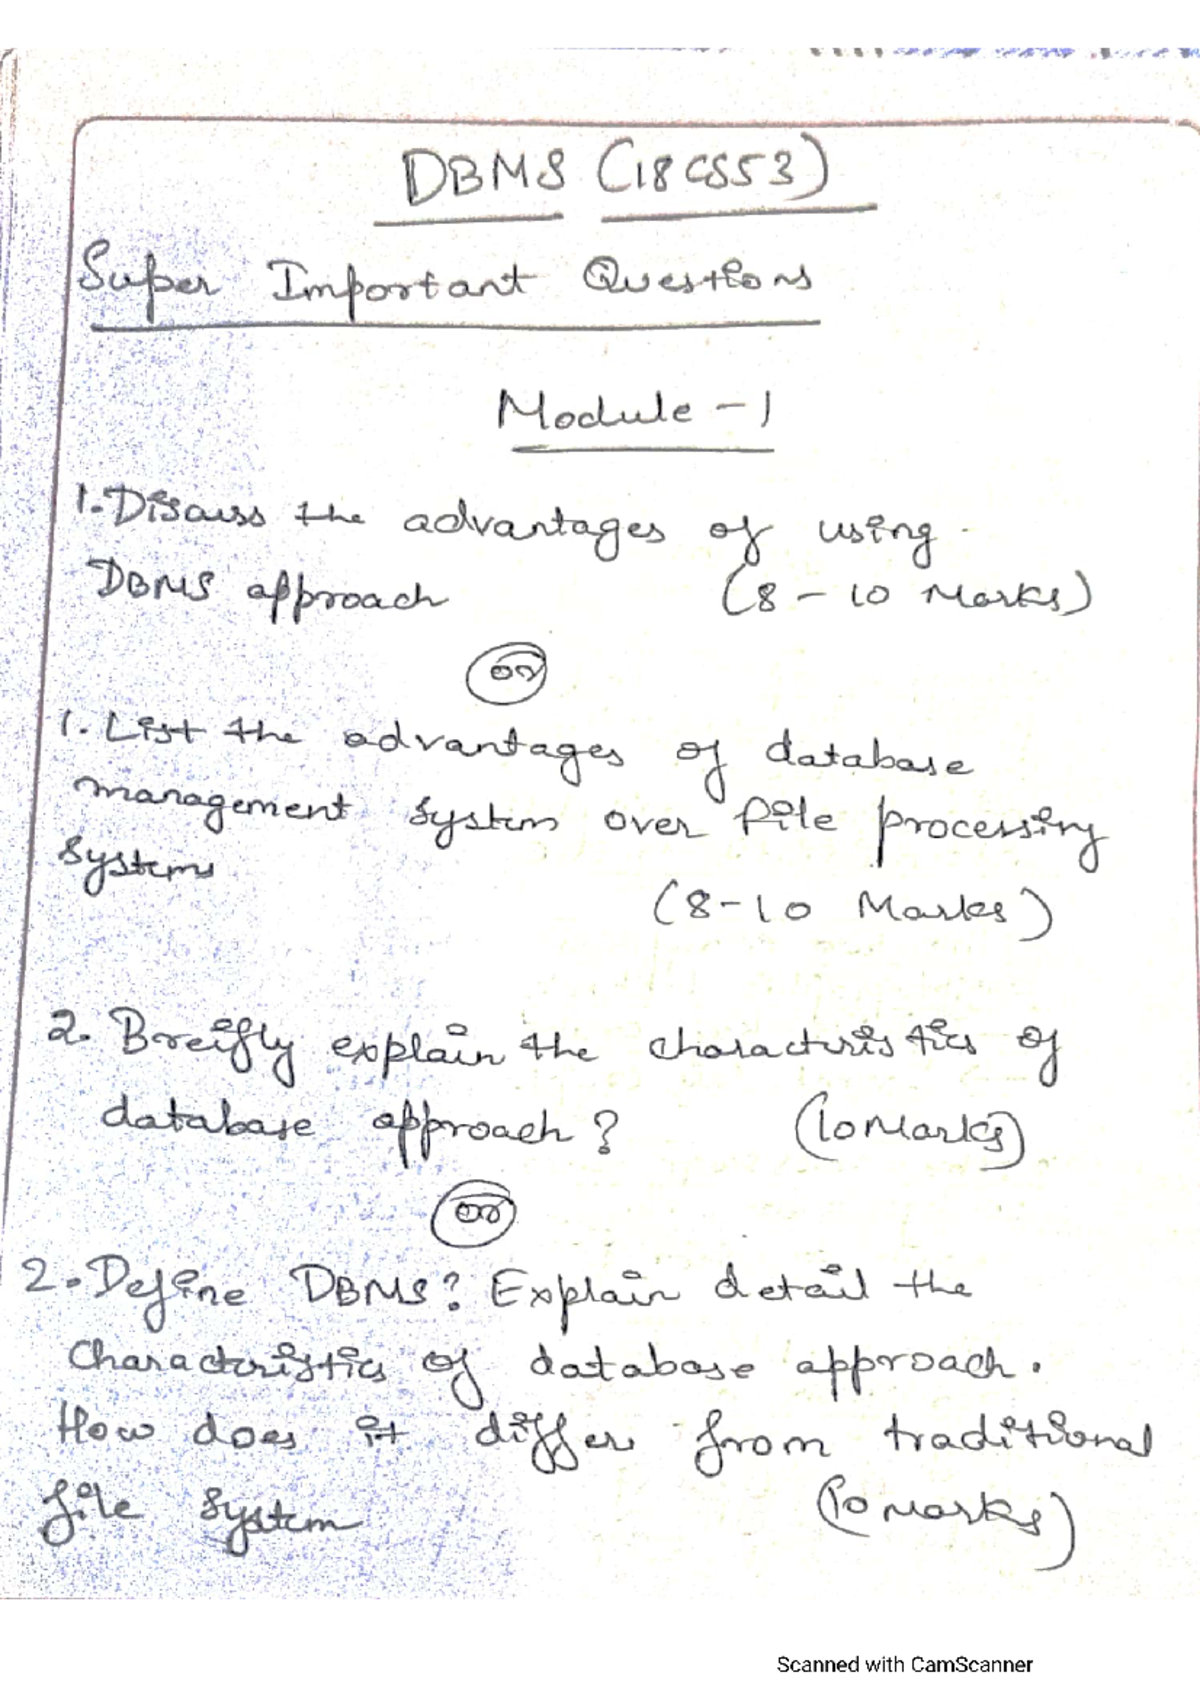 DBMS (18CS53)
Super Important Questions
Module - 1
1. Discuss the advantages of using
DBMS approach (8 - 10 Marks)
or
1. List the advantages of database
management system over file processing
systems
(8-10 Marks)
2. Breifly explain the characteristics of
database approach? (10 Marks)
or
2. Define DBMS? Explain detail the
characteristics of database approach.
How does it differ from traditional
file system (10 Marks)
Scanned with CamScanner